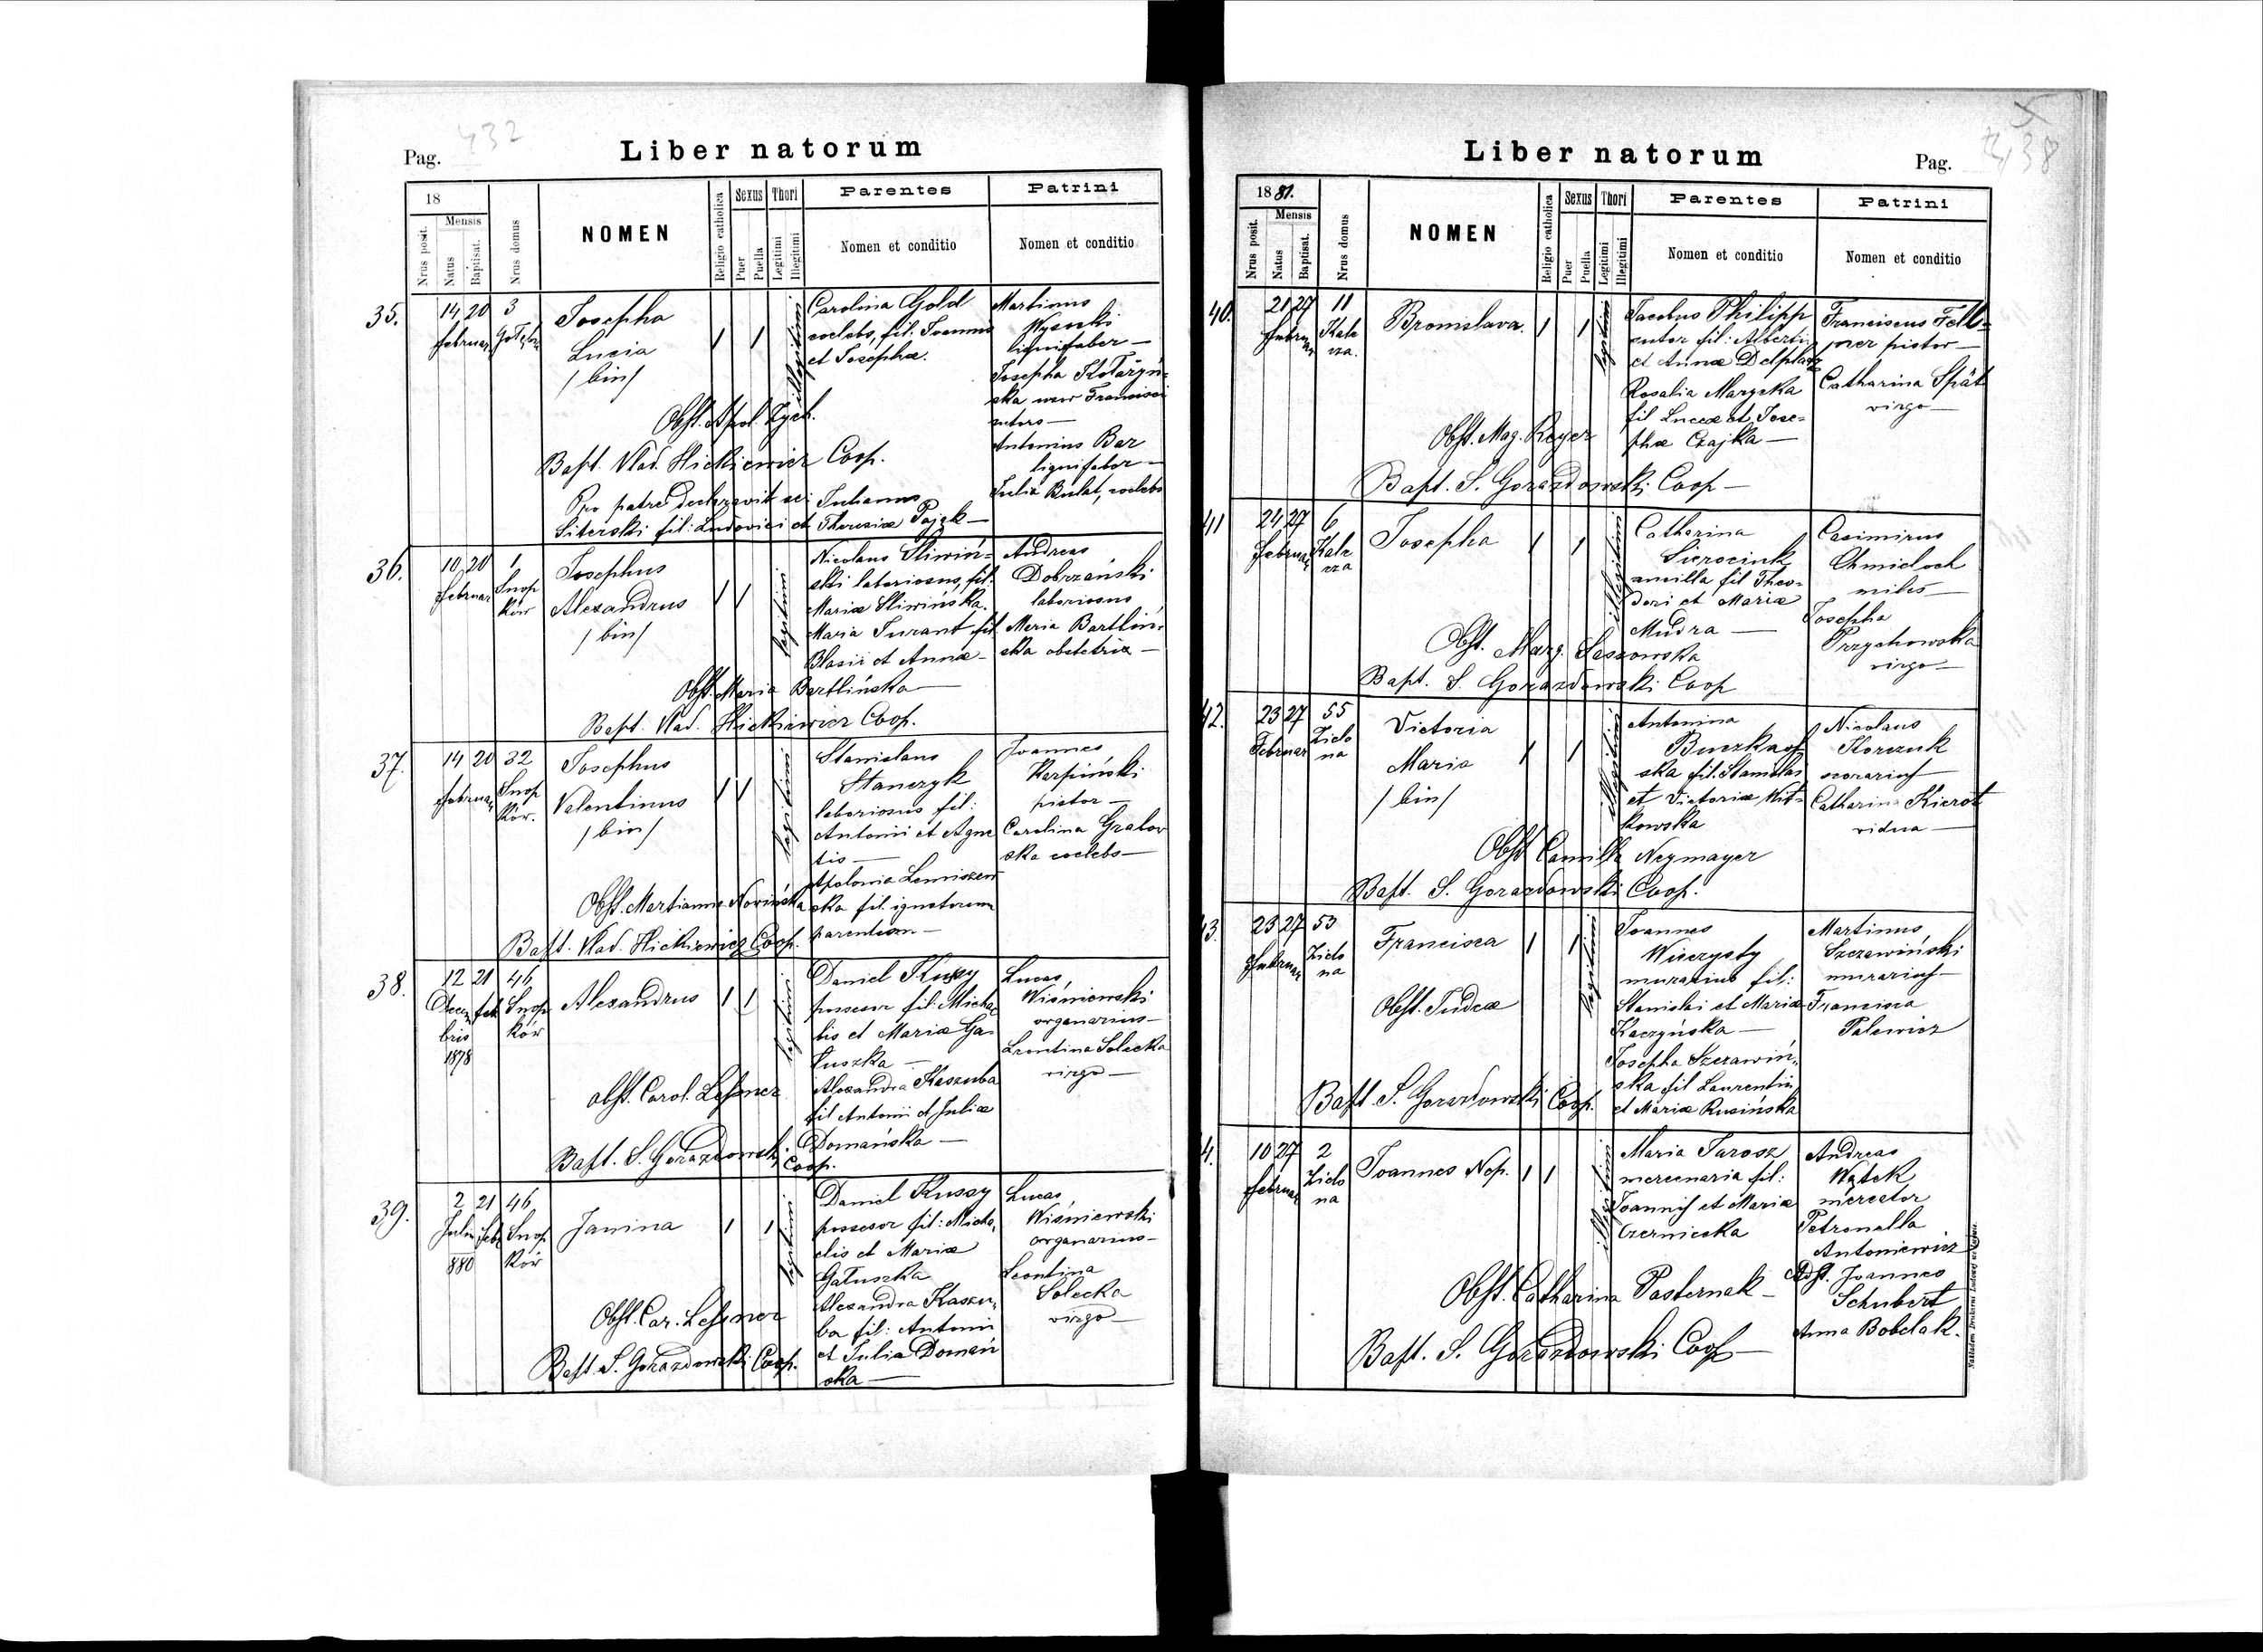 432
Pag.
Liber natorum
18
Nrus posit.
Mensis
Natus
Baptisat.
Nrus domus
NOMEN
Religio catholica
Sexus
Puer
Puella
Thori
Legitimi
Illegitimi
Parentes
Nomen et conditio
Patrini
Nomen et conditio
35.
14 20 3
Februar
Josepha
Lucia
/ bin /
1 1
illegitimi
Carolina Gold
coelebs, fil. Joannis
et Josephæ.
Martinus
Wysocki
lignifaber —
Josepha
ska uxor Francisci
sutors —
Antonius Bar
lignifaber —
Julia Bulat, coelebs
Obst. Apol. Zych.
Bapt. Vlad. Hickiewicz Coop.
Pro patre declaravit se: Julianus
Siterski fil: Ludovici et Theresiæ Pająk —
36.
10 20 1
Februar Snop
ków
Josephus
Alexandrus
/ bin /
1 1
legitimi
Nicolaus Sliwiń=
ski laboriosus, fil.
Mariæ Sliwińska.
Maria Turant fil
Blasii et Annæ —
Andreas
Dobrzański
laboriosus
Maria Bartliń-
ska obstetrix —
Obst. Maria Bartlińska —
Bapt. Vlad. Hickiewicz Coop.
37.
14 20 32
Februar Snop
ków.
Josephus
Valentinus
/ bin /
1 1
legitimi
Stanislaus
Stanczyk
laboriosus fil:
Antonii et Agne
tis —
Apolonia Lemiszew
ska fil. ignotorum
parentum —
Joannes
Karpiński
pistor —
Carolina Grabow
ska coelebs —
Obst. Martianna Nowińska
Bapt. Vlad. Hickiewicz Coop.
38.
12 21 46
Decem Feb Snop
bris ków
1878
Alexandrus
1 1
legitimi
Daniel Kussy
possesor fil: Micha
lis et Mariæ Ga-
łuszka —
Alexandra Kaszuba
fil Antonii et Juliæ
Domańska —
Lucas
Wiśniewski
organarius —
Leontina Solecka
virgo —
Obst. Carol. Leßner
Bapt. S. Gorazdowski Coop.
39.
2 21 46
Julii Feb Snop
880 ków
Janina
1 1
legitimi
Daniel Kussy
possesor fil: Micha
elis et Mariæ
Gałuszka
Alexandra Kaszu-
ba fil: Antonii
et Julia Domań
ska —
Lucas
Wiśniewski
organarius —
Leontina
Solecka
virgo —
Obst. Car. Leßner
Bapt. S. Gorazdowski Coop.
Liber natorum
Pag.
38
1881.
Nrus posit.
Mensis
Natus
Baptisat.
Nrus domus
NOMEN
Religio catholica
Sexus
Puer
Puella
Thori
Legitimi
Illegitimi
Parentes
Nomen et conditio
Patrini
Nomen et conditio
40.
21 27 11
Februar Kale
cza.
Bronislava.
1 1
legitimi
Jacobus Philipp
sutor fil: Alberti
et Annæ
Rosalia Maryska
fil Lucæ et Jose=
phæ Czajka —
Franciscus Fell=
ner pistor —
Catharina Spät
virgo —
Obst. Mag. Reyer
Bapt. S. Gorazdowski Coop —
41
24 27 6
Februar Kale
cza
Josepha
1 1
illegitimi
Catharina
Sierocink
ancilla fil Theo=
dori et Mariæ
Mudra —
Casimirus
Chmieloch
miles —
Josepha
Przychowska
virgo —
Obst. Marg. Saszowska
Bapt. S. Gorazdowski Coop
42.
23 27 55
Februar Zielo
na
Victoria
Maria
/ bin /
1 1
illegitimi
Antonina
ska fil. Stanislai
et Victoriæ Wit=
kowska
Nicolaus
Korczuk
Catharina Kierot
vidua —
Obst Camilla Neymayer
Bapt. S. Gorazdowski Coop.
3.
23 27 53
Februar Zielo
na
Francisca
1 1
legitimi
Joannes
Wieczysty
murarius fil:
Stanislai et Mariæ
Kaczyńska —
Josepha Szczawiń-
ska fil Laurentii
et Mariæ Rusińska
Martinus
Szczawiński
murarius
Francisca
Palewicz
Obst. Judea
Bapt. S. Gorazdowski Coop.
4.
10 27 2
Februar Zielo
na
Joannes Nep.
1 1
illegitimi
Maria Jarosz
mercenaria fil:
Joannis et Mariæ
Czernicka
Andreas
Wątek
mercator
Petronella
Antoniewicz
Joannes
Schubert
Anna Bobelak.
Obst. Catharina Pasternak —
Bapt. S. Gorazdowski Coop —